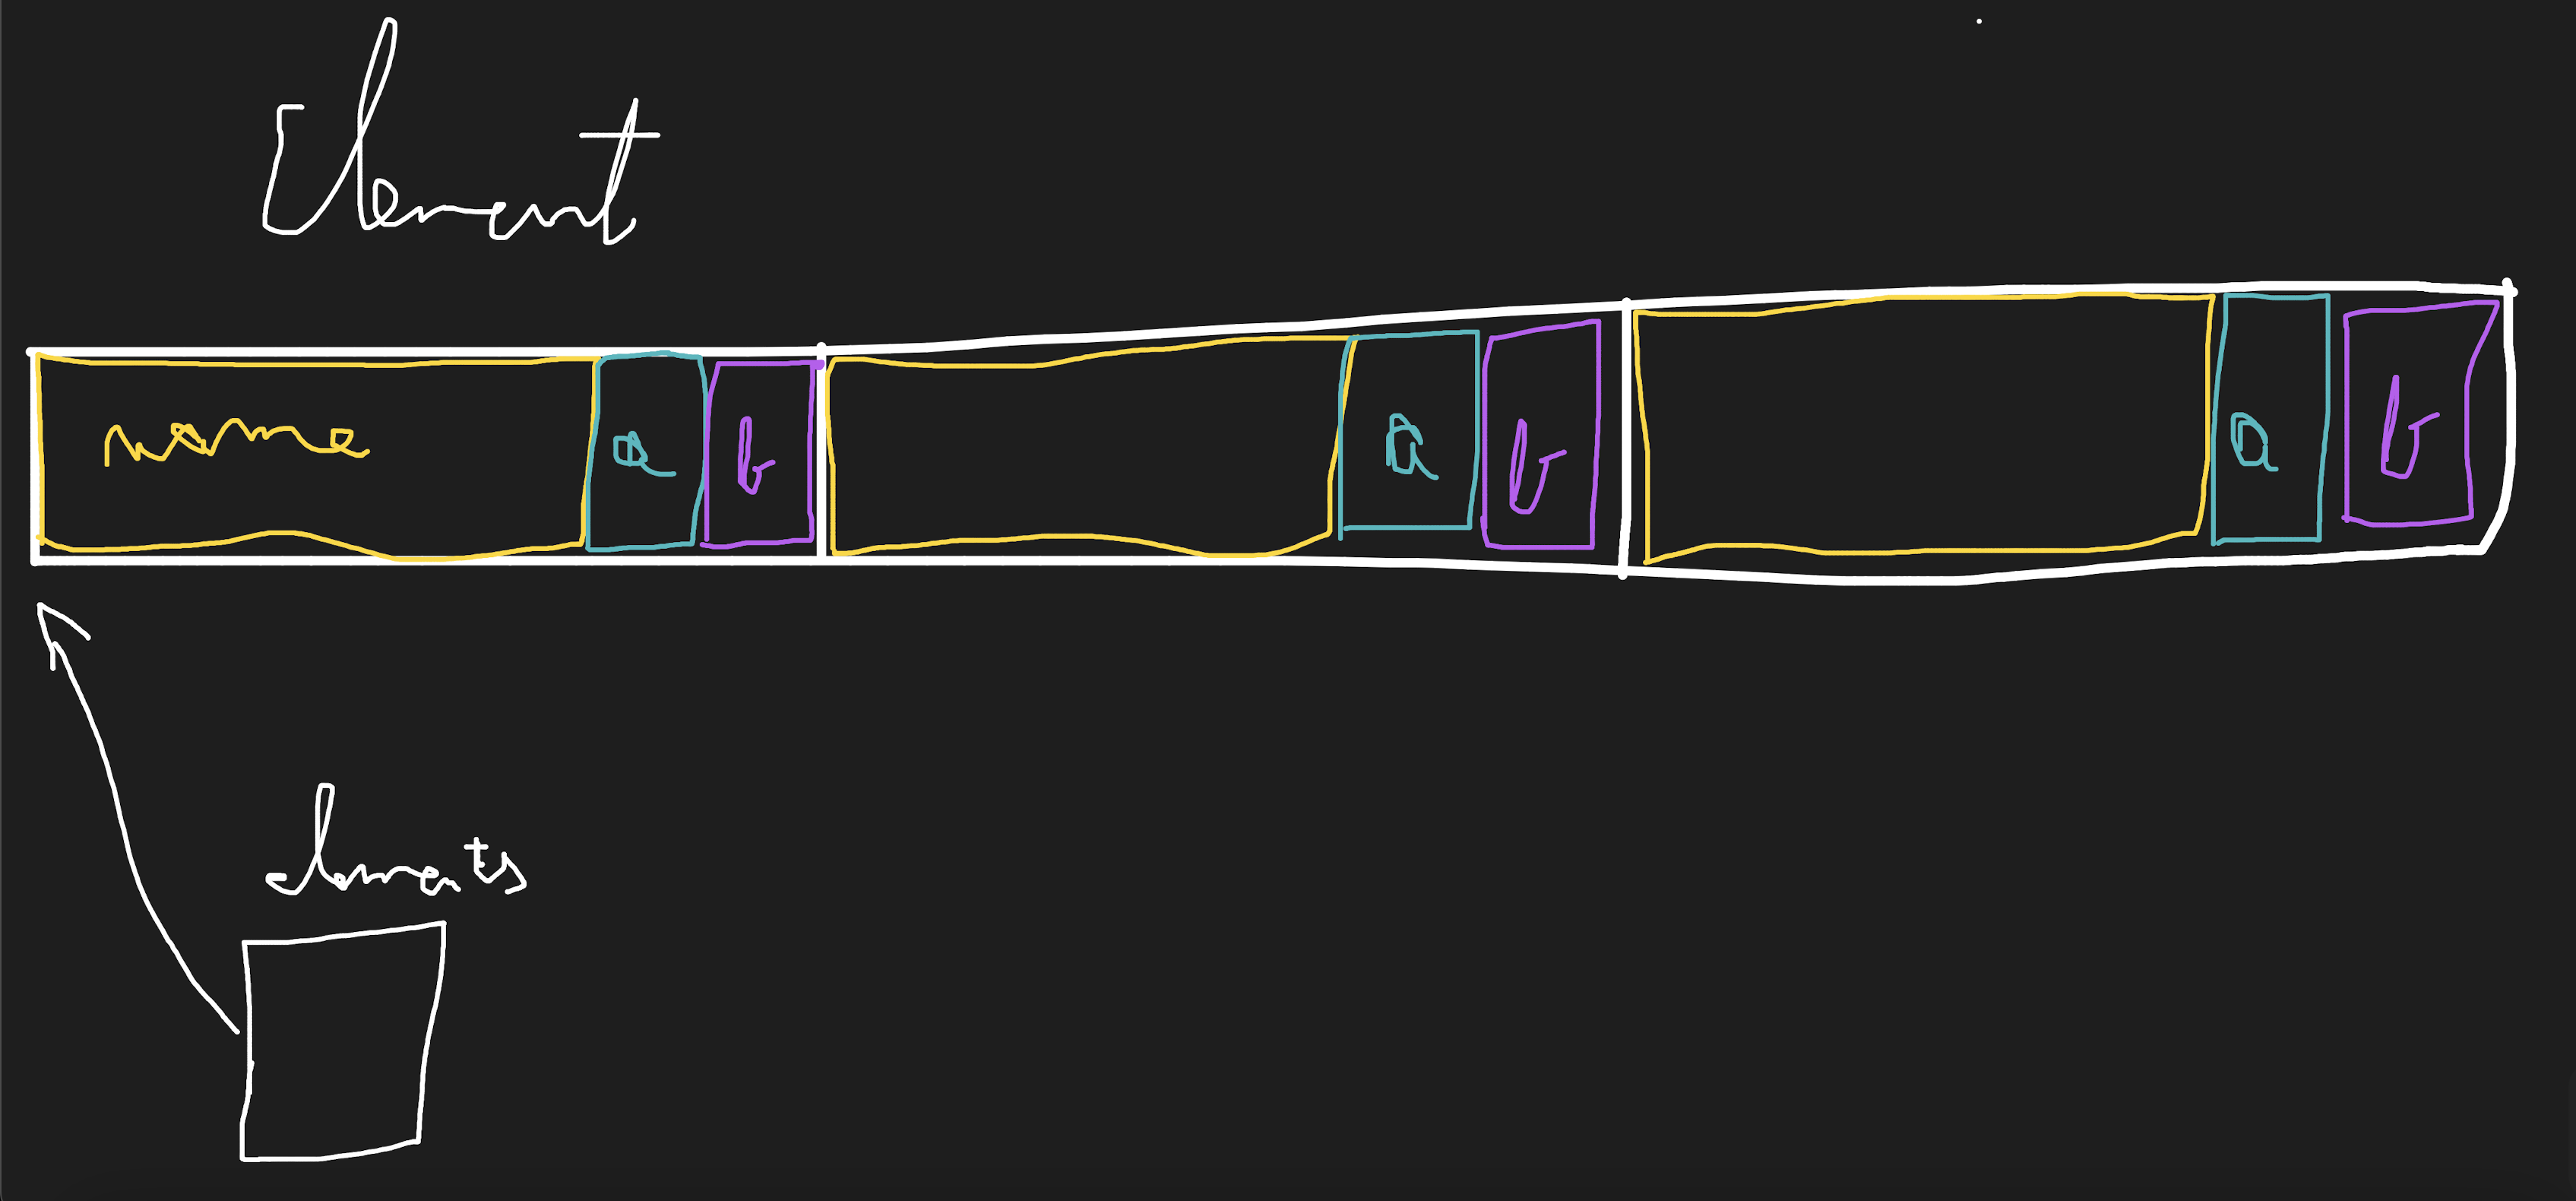 Element
name a b a b a b
elements